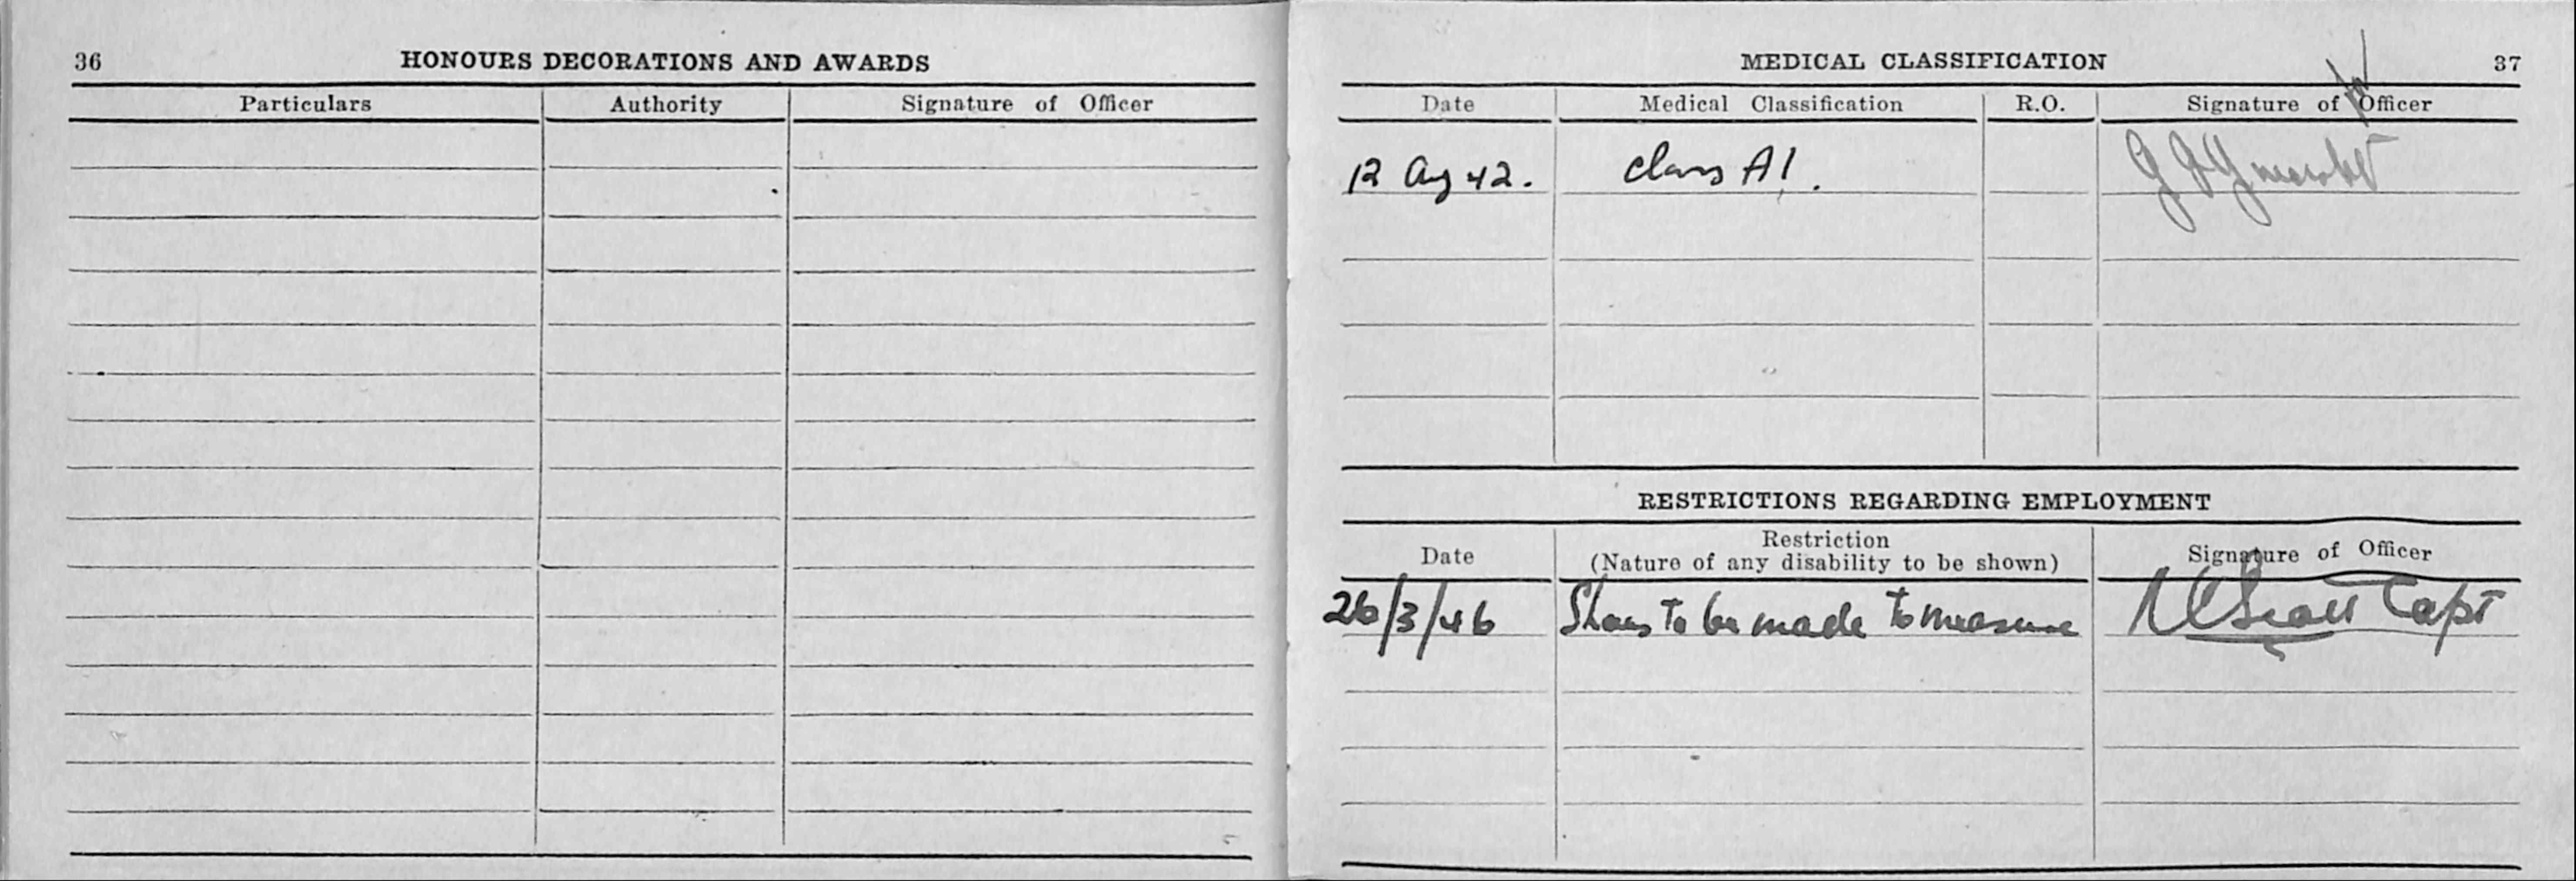 36 HONOURS DECORATIONS AND AWARDS
Particulars Authority Signature of Officer
MEDICAL CLASSIFICATION 37
Date Medical Classification R.O. Signature of Officer
12 Aug 42. Class A1.
RESTRICTIONS REGARDING EMPLOYMENT
Date Restriction (Nature of any disability to be shown) Signature of Officer
26/3/46 Shoes to be made to measure Capt